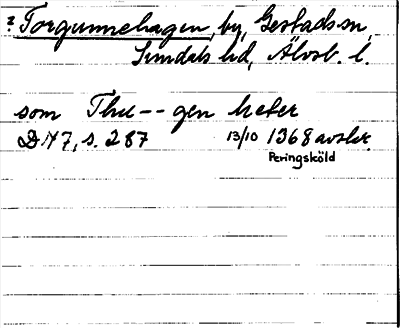 ? Torgunnehagen, by, Gestads sn,
Sundals hd, Älvsb. l.
som Thu--gen heter
DN 7, s. 287 13/10 1368 avskr.
Peringsköld